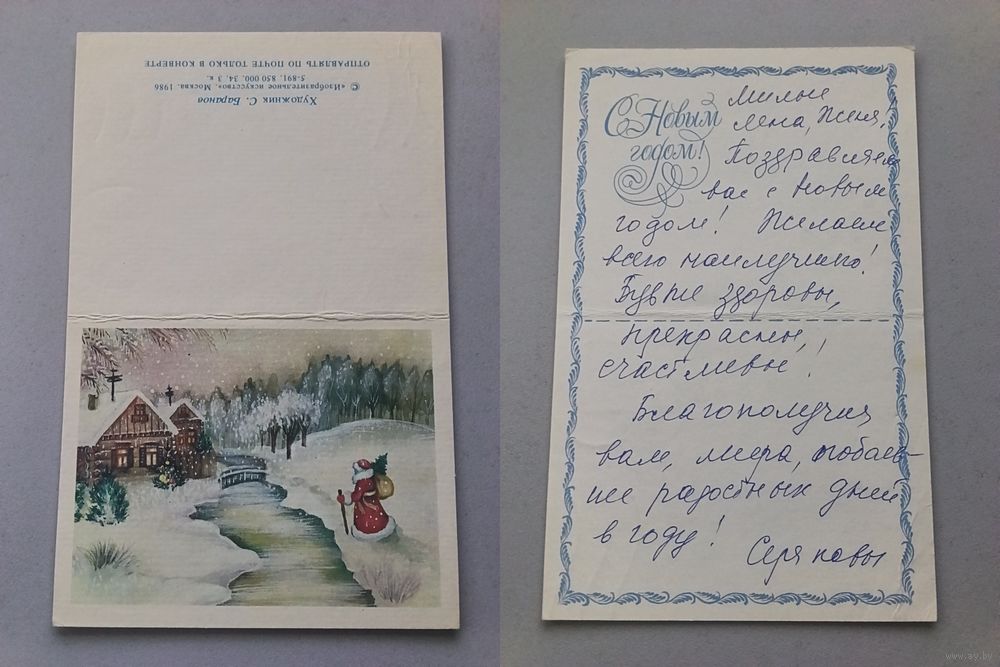 Художник С. Баранов
© «Изобразительное искусство». Москва. 1986
5-891. 850 000. 34. 3 к.
ОТПРАВЛЯТЬ ПО ПОЧТЕ ТОЛЬКО В КОНВЕРТЕ
С Новым
годом!
Милые
Лена, Женя!
Поздравляем
вас с Новым
годом! Желаем
всего наилучшего!
Будьте здоровы,
прекрасны,
счастливы!
Благополучия
вам, мира, побольше
радостных дней
в году!
Серяковы
www.ay.by